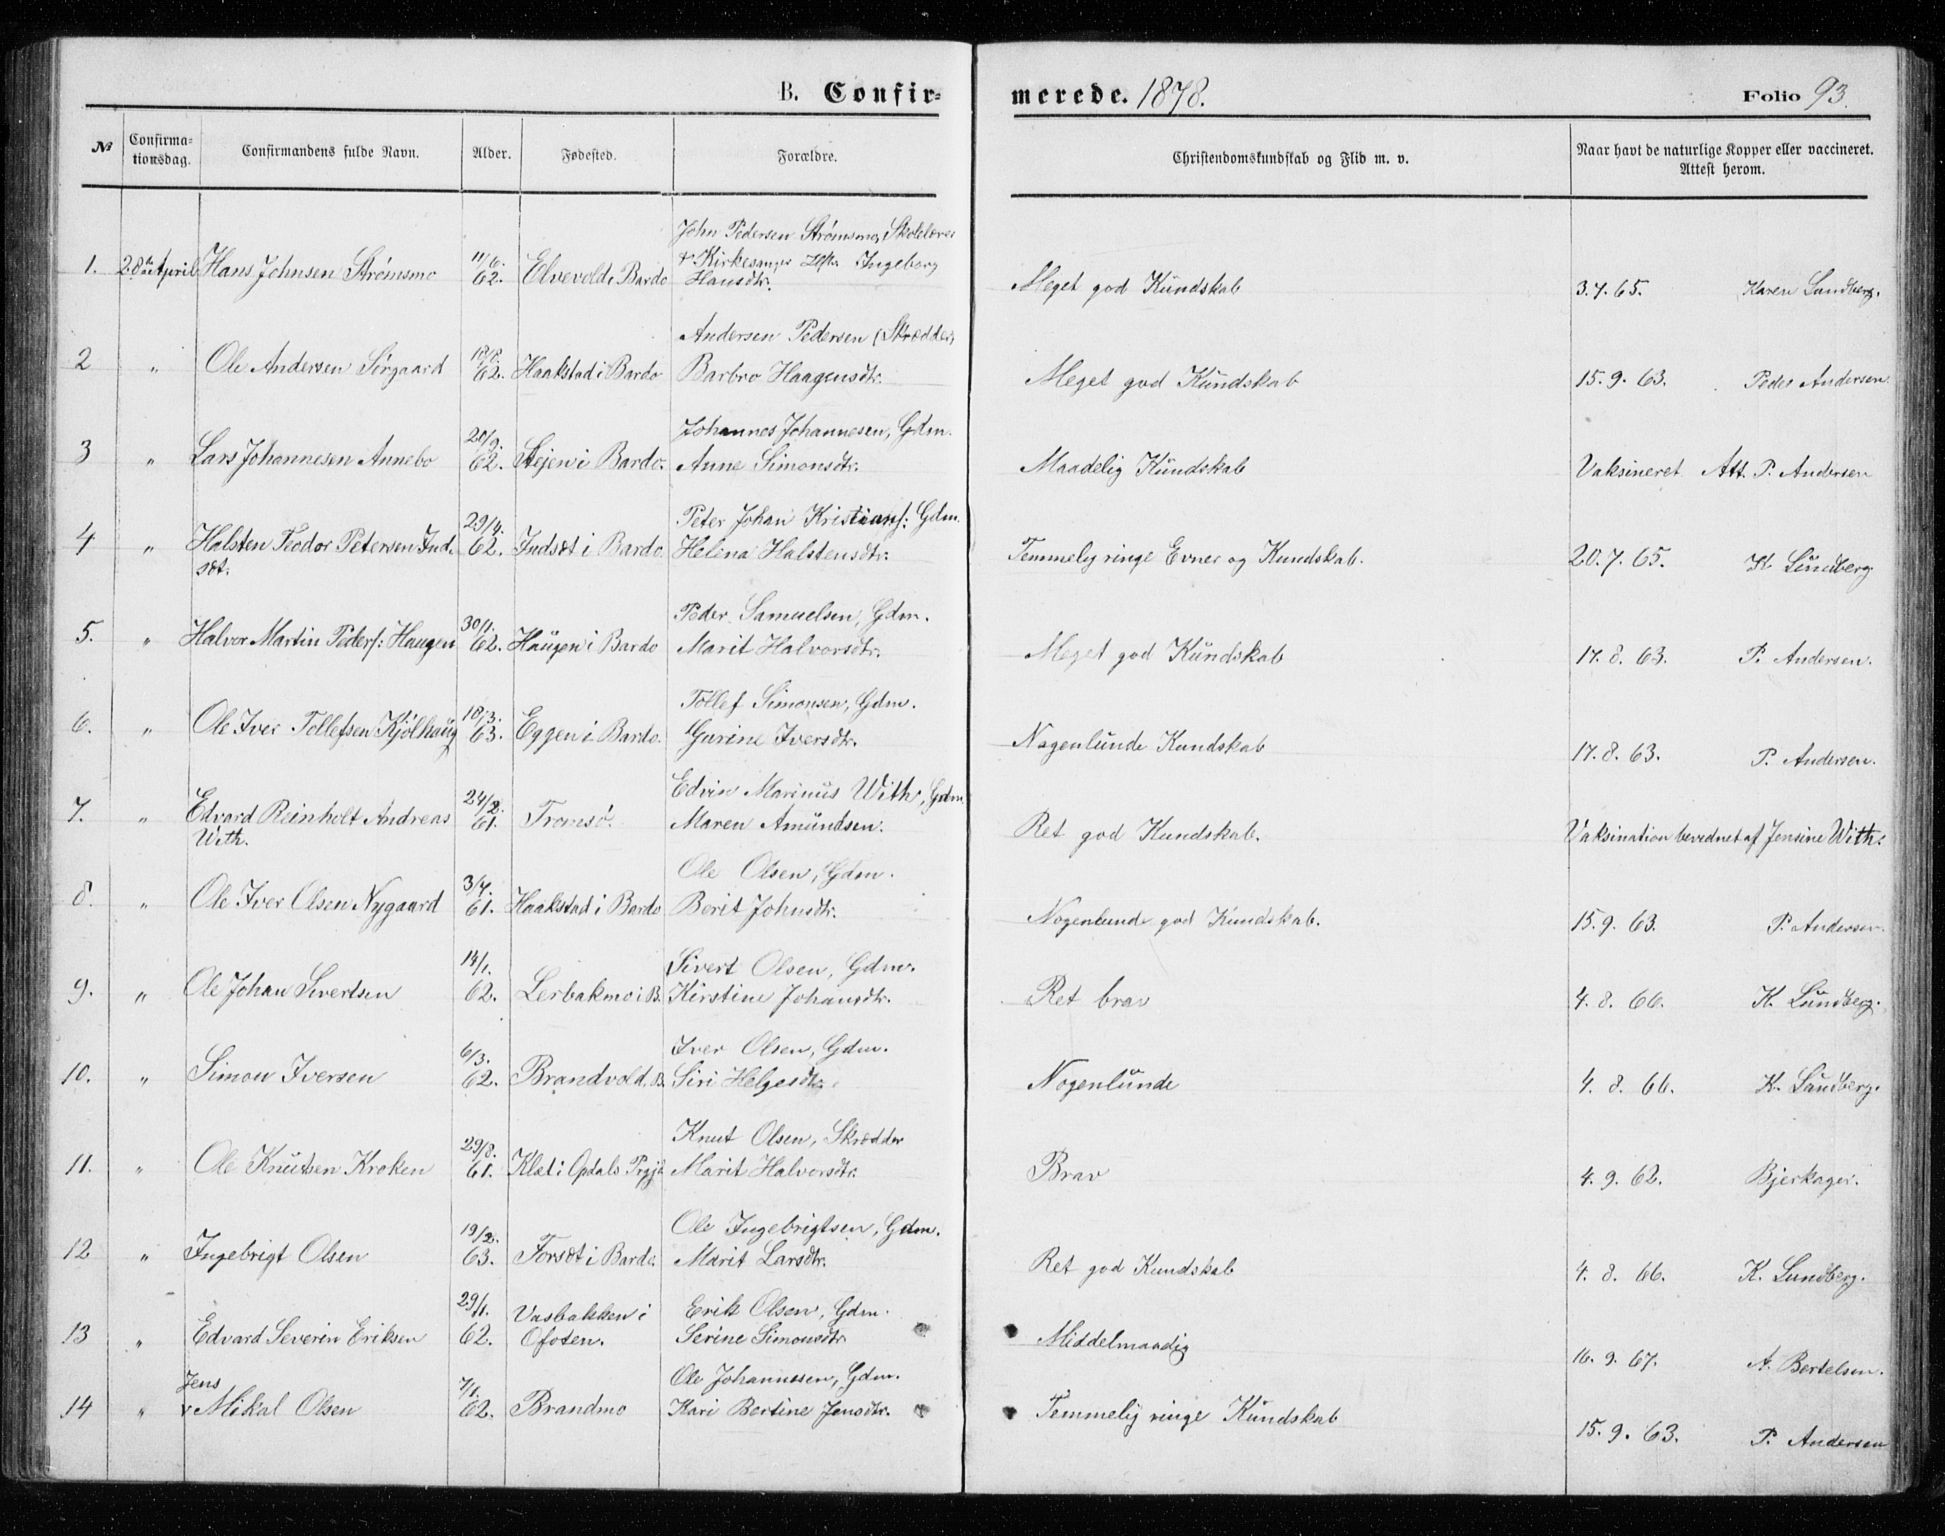 B. Confirmerede. 1878. Folio 93.
№ Confirmationsdag. Confirmandens fulde Navn. Alder. Fødested. Forældre. Christendomskundskab og Flid m. v. Naar havt de naturlige Kopper eller vaccineret. Attest herom.
John Pedersen Strømsmo, Skolelærer
1. 28de April Hans Johnsen Strømsmo 11/6. 62. Elvevold i Bardo & Kirkesanger Ingeborg
Hansdtr. Meget god Kundskab 3.7.65. Karen Lundberg.
Andersen Pedersen (Skrædder)
2 " Ole Andersen Sørgaard 62. Haakstad i Bardo Barbro Haagensdtr. Meget god Kundskab 15. 9. 63. Peder Andersen.
Johannes Johannesen, Gdm.
3 " Lars Johannesen Annebo 20/9. 62. Stejen i Bardo. Anne Simonsdtr. Maadelig Kundskab Vaksineret Att. P. Andersen
Peter Johan Kristians: Gdm.
4 " Halsten Teodor Petersen Ind- 29/4. 62. Indsæt i Bardo. Helena Halstensdtr. Temmelig ringe Evner og Kundskab. 20. 7. 65. K. Lundberg
sæt.
Peder Samuelsen, Gdm.
5. " Halvor Martin Peders: Haugen 30/1. 62. Haugen i Bardo Marit Halvorsdtr. Meget god Kundskab 17. 8. 63. P. Andersen.
Tollef Simonsen, Gdm.
6. " Ole Iver Tollefsen Kjølhaug 18/3. 63. Eggen i Bardo. Gurine Iversdtr. Nogenlunde Kundskab 17. 8. 63. P. Andersen.
Edvin Marinus With, Gdm
7. " Edvard Reinholt Andreas 24/2. 61. Tromsø. Maren Amundsen. Ret god Kundskab. Vaksination bevidnet af Jensine With.
With.
Ole Olsen, Gdm.
8. " Ole Iver Olsen Nygaard 3/4. 61. Haakstad i Bardo Berit Johnsdtr. Nogenlunde god Kundskab. 15. 9. 63. P. Andersen.
Sivert Olsen, Gdm.
9. " Ole Johan Sivertsen 62. Lerbakmo i B. Kirstine Johansdtr. Ret brav 4. 8. 66. K. Lundberg.
Iver Olsen, Gdm.
10. " Simon Iversen 6/3. 62. Brandvold, B. Siri Helgesdtr. Nogenlunde 4. 8. 66. K. Lundberg.
Knut Olsen, Skrædder
11. " Ole Knutsen Kroken 29/8. 61. Klæt i Opdals Prgjd Marit Halvorsdtr. Brav 4. 9. 62. Bjerkager.
Ole Ingebrigtsen, Gdm.
12 " Ingebrigt Olsen 19/2. 63. Forsæt i Bardo. Marit Larsdtr. Ret god Kundskab 4. 8. 66. K. Lundberg.
29/1. Vasbakken i Erik Olsen, Gdm.
13 " Edvard Severin Eriksen 62. Ofoten. Serine Simonsdtr Middelmaadig 16. 9. 67. A. Bertelsen.
Jens 7/1. Ole Johannesen, Gdm.
14 " Mikal Olsen 62. Brandmo Kari Bertine Jensdtr. Temmelig ringe Kundskab 15. 9. 63. P. Andersen